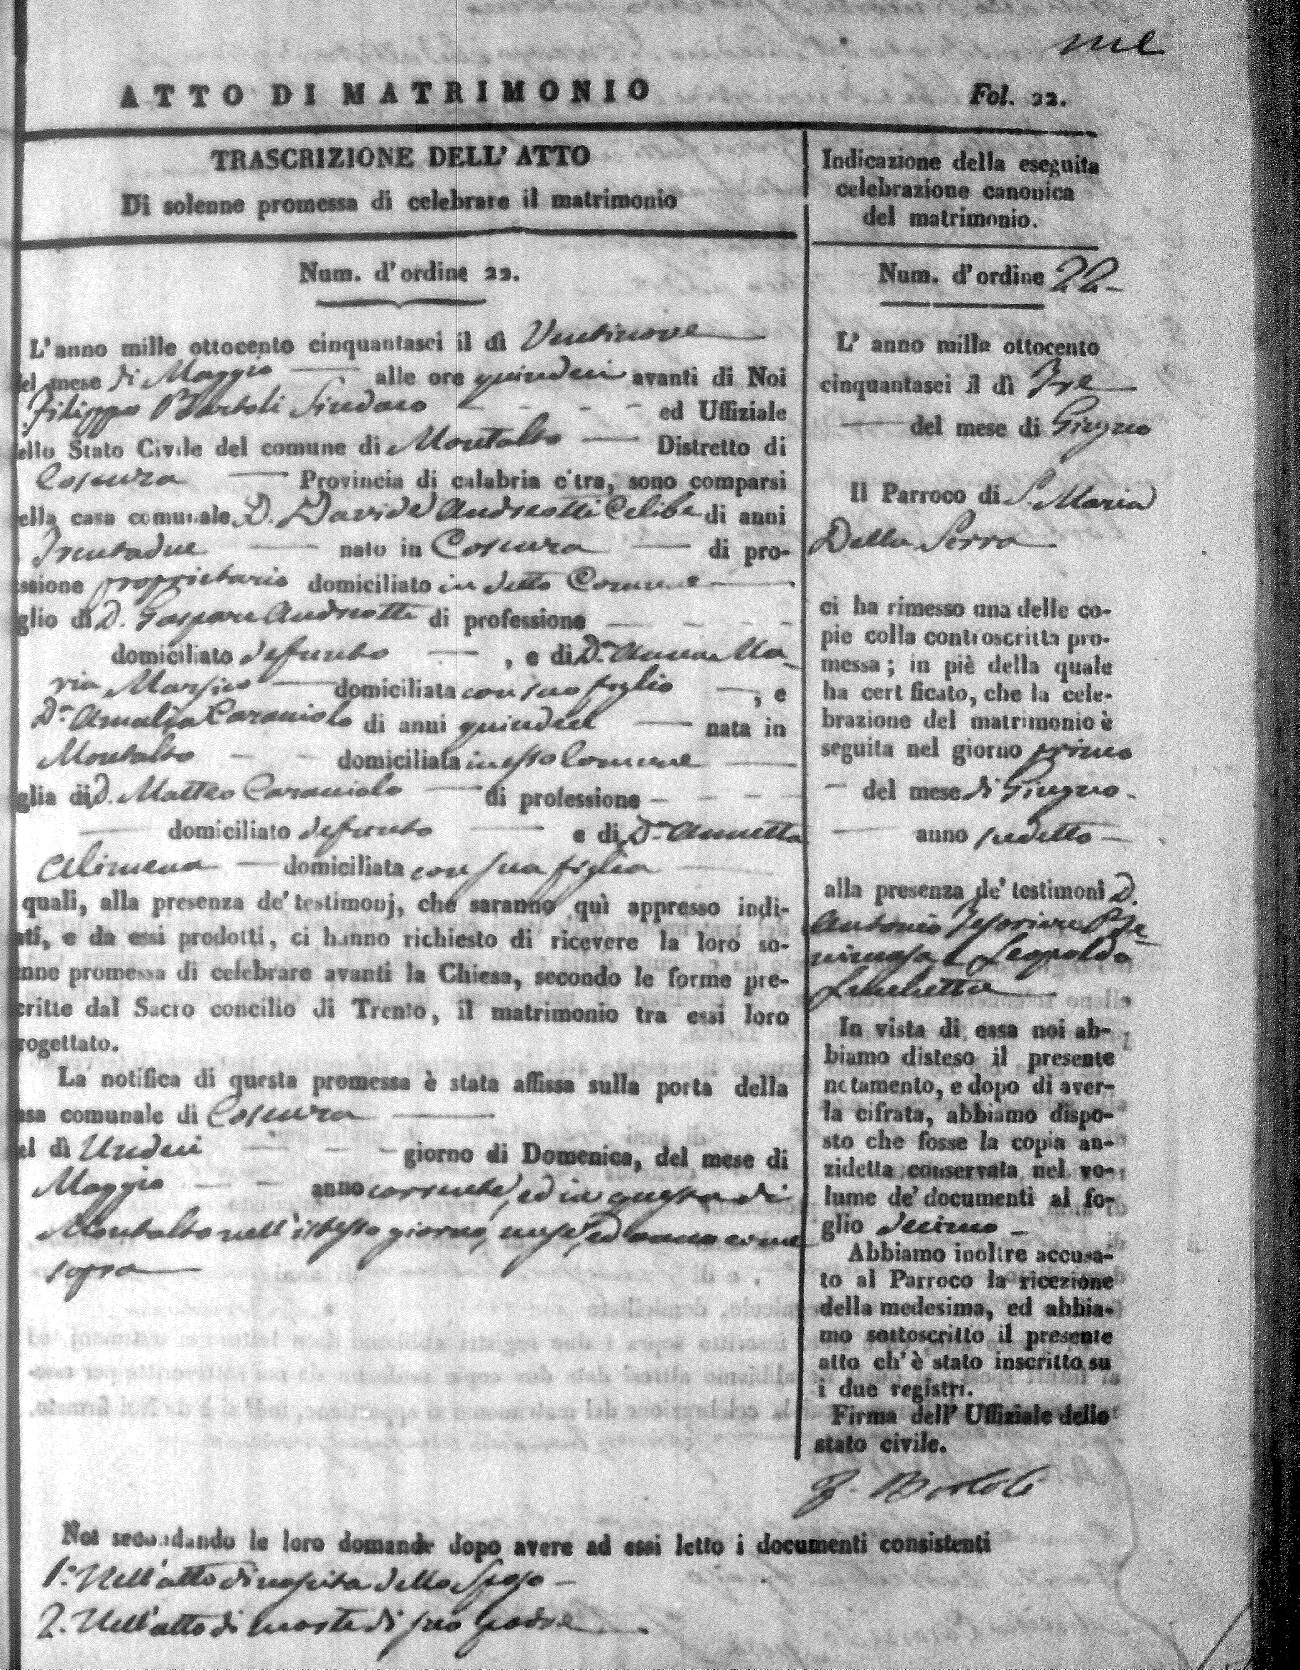 me
ATTO DI MATRIMONIO
Fol. 22.
TRASCRIZIONE DELL' ATTO
Di solenne promessa di celebrare il matrimonio
Num. d'ordine 22.
L'anno mille ottocento cinquantasei il dì Ventinove
el mese di Maggio alle ore quindici avanti di Noi
Filippo Bartoli Sindaco ed Uffiziale
ello Stato Civile del comune di Montalto Distretto di
Cosenza Provincia di calabria citra, sono comparsi
ella casa comunale D. Davide Andreotti Celibe di anni
Trentadue nato in Cosenza di pro-
ssione proprietario domiciliato in detto Comune
glio di D. Gaspare Andreotti di professione
domiciliato defunto , e di D.a Anna Ma-
ria domiciliata con suo figlio , e
D.a Amalia Caraciolo di anni quindici nata in
Montalto domiciliata in esso Comune
glia di D. Matteo Caraciolo di professione
domiciliato defunto e di D.a Annetta
Alimena domiciliata con sua figlia
quali, alla presenza de' testimonj, che saranno quì appresso indi-
ati, e da essi prodotti, ci hanno richiesto di ricevere la loro so-
enne promessa di celebrare avanti la Chiesa, secondo le forme pre-
critte dal Sacro concilio di Trento, il matrimonio tra essi loro
rogettato.
La notifica di questa promessa è stata affissa sulla porta della
asa comunale di Cosenza
el dì Undici giorno di Domenica, del mese di
Maggio anno corrente, ed in questa di
Montalto nell'istesso giorno, mese, ed anno come
sopra
Indicazione della eseguita
celebrazione canonica
del matrimonio.
Num. d'ordine 22
L' anno mille ottocento
cinquantasei il dì Tre
del mese di Giugno
Il Parroco di S. Maria
Della Serra
ci ha rimesso una delle co-
pie colla controscritta pro-
messa; in piè della quale
ha cert ficato, che la cele-
brazione del matrimonio è
seguita nel giorno primo
del mese di Giugno
anno sudetto
alla presenza de' testimoni D.
Antonio
e Leopoldo
In vista di essa noi ab-
biamo disteso il presente
notamento, e dopo di aver-
la cifrata, abbiamo dispo-
sto che fosse la copia an-
zidetta conservata nel vo-
lume de' documenti al fo-
glio decimo
Abbiamo inoltre accusa-
to al Parroco la ricezione
della medesima, ed abbia-
mo sottoscritto il presente
atto ch' è stato inscritto su
i due registri.
Firma dell' Uffiziale dello
stato civile.
F. Bartoli
Noi secondando le loro domande dopo avere ad essi letto i documenti consistenti
1.° Nell'atto di nascita dello Sposo
2. Nell'atto di morte di suo padre